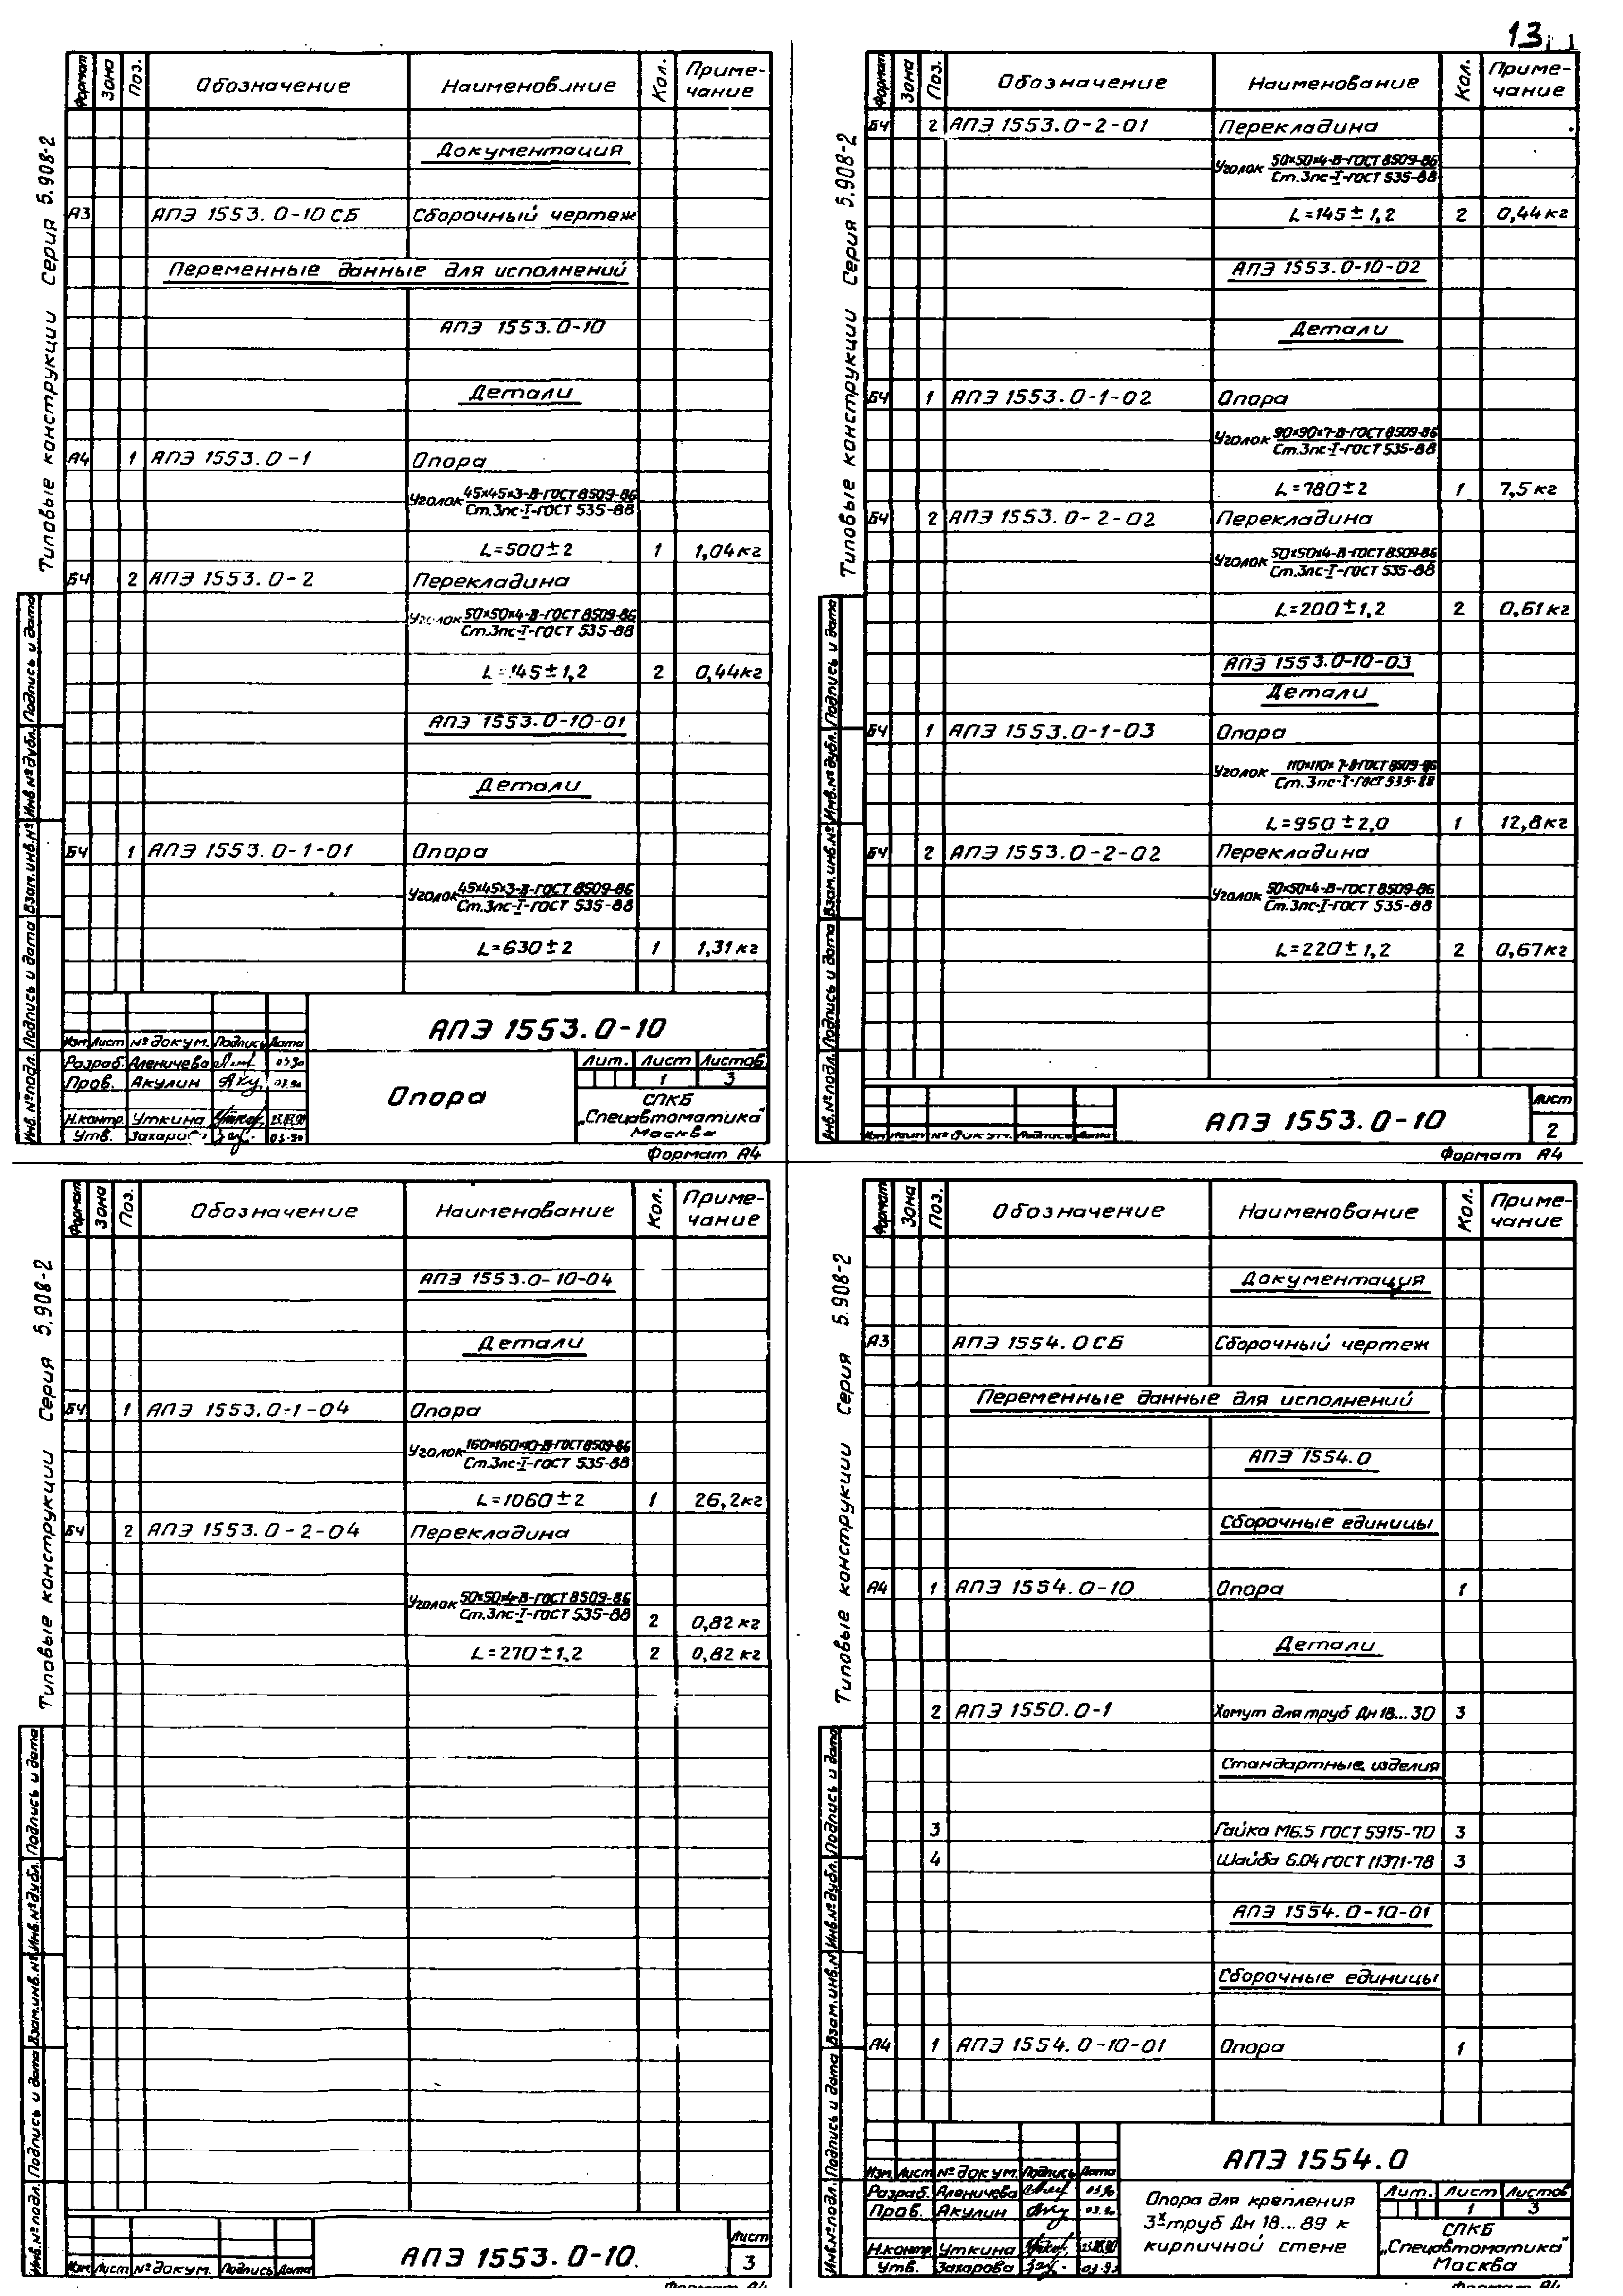 13
Типовые конструкции Серия 5.908-2
Формат Зона Поз. Обозначение Наименование Кол. Приме-
чание
Документация
А3 АПЭ 1553.0-10 СБ Сборочный чертеж
Переменные данные для исполнений
АПЭ 1553.0-10
Детали
А4 1 АПЭ 1553.0-1 Опора
Уголок 45×45×3-В-ГОСТ 8509-86
Ст.3пс-I-ГОСТ 535-88
L=500±2 1 1,04кг
БЧ 2 АПЭ 1553.0-2 Перекладина
Уголок 50×50×4-В-ГОСТ 8509-86
Ст.3пс-I-ГОСТ 535-88
L=145±1,2 2 0,44кг
АПЭ 1553.0-10-01
Детали
БЧ 1 АПЭ 1553.0-1-01 Опора
Уголок 45×45×3-В-ГОСТ 8509-86
Ст.3пс-I-ГОСТ 535-88
L=630±2 1 1,31кг
Инв.№подл. Подпись и дата Взам.инв.№ Инв.№дубл. Подпись и дата
АПЭ 1553.0-10
Изм. Лист № докум. Подпись Дата
Разраб. Аленичева 03.90
Пров. Акулин 03.90
Н.контр. Уткина
Утв. Захарова 03.90
Опора
Лит. Лист Листов
1 3
СПКБ
„Спецавтоматика"
Москва
Формат А4
Типовые конструкции Серия 5.908-2
Формат Зона Поз. Обозначение Наименование Кол. Приме-
чание
БЧ 2 АПЭ 1553.0-2-01 Перекладина
Уголок 50×50×4-В-ГОСТ 8509-86
Ст.3пс-I-ГОСТ 535-88
L=145±1,2 2 0,44кг
АПЭ 1553.0-10-02
Детали
БЧ 1 АПЭ 1553.0-1-02 Опора
Уголок 90×90×7-В-ГОСТ 8509-86
Ст.3пс-I-ГОСТ 535-88
L=780±2 1 7,5кг
БЧ 2 АПЭ 1553.0-2-02 Перекладина
Уголок 50×50×4-В-ГОСТ 8509-86
Ст.3пс-I-ГОСТ 535-88
L=200±1,2 2 0,61кг
АПЭ 1553.0-10-03
Детали
БЧ 1 АПЭ 1553.0-1-03 Опора
Уголок 110×110×7-В-ГОСТ 8509-86
Ст.3пс-I-ГОСТ 535-88
L=950±2,0 1 12,8кг
БЧ 2 АПЭ 1553.0-2-02 Перекладина
Уголок 50×50×4-В-ГОСТ 8509-86
Ст.3пс-I-ГОСТ 535-88
L=220±1,2 2 0,67кг
Инв.№подл. Подпись и дата Взам.инв.№ Инв.№дубл. Подпись и дата
Изм. Лист № докум. Подпись Дата
АПЭ 1553.0-10
Лист
2
Формат А4
Типовые конструкции Серия 5.908-2
Формат Зона Поз. Обозначение Наименование Кол. Приме-
чание
АПЭ 1553.0-10-04
Детали
БЧ 1 АПЭ 1553.0-1-04 Опора
Уголок 160×160×10-В-ГОСТ 8509-86
Ст.3пс-I-ГОСТ 535-88
L=1060±2 1 26,2кг
БЧ 2 АПЭ 1553.0-2-04 Перекладина
Уголок 50×50×4-В-ГОСТ 8509-86
Ст.3пс-I-ГОСТ 535-88 2 0,82кг
L=270±1,2 2 0,82кг
Инв.№подл. Подпись и дата Взам.инв.№ Инв.№дубл. Подпись и дата
Изм. Лист № докум. Подпись Дата
АПЭ 1553.0-10.
Лист
3
Формат А4
Типовые конструкции Серия 5.908-2
Формат Зона Поз. Обозначение Наименование Кол. Приме-
чание
Документация
А3 АПЭ 1554.0СБ Сборочный чертеж
Переменные данные для исполнений
АПЭ 1554.0
Сборочные единицы
А4 1 АПЭ 1554.0-10 Опора 1
Детали
2 АПЭ 1550.0-1 Хомут для труб Дн 18...30 3
Стандартные изделия
3 Гайка М6.5 ГОСТ 5915-70 3
4 Шайба 6.04 ГОСТ 11371-78 3
АПЭ 1554.0-10-01
Сборочные единицы
А4 1 АПЭ 1554.0-10-01 Опора 1
Инв.№подл. Подпись и дата Взам.инв.№ Инв.№дубл. Подпись и дата
АПЭ 1554.0
Изм. Лист № докум. Подпись Дата
Разраб. Аленичева 03.90
Пров. Акулин 03.90
Н.контр. Уткина
Утв. Захарова
Опора для крепления
3х труб Дн 18...89 к
кирпичной стене
Лит. Лист Листов
1 3
СПКБ
„Спецавтоматика"
Москва
Формат А4